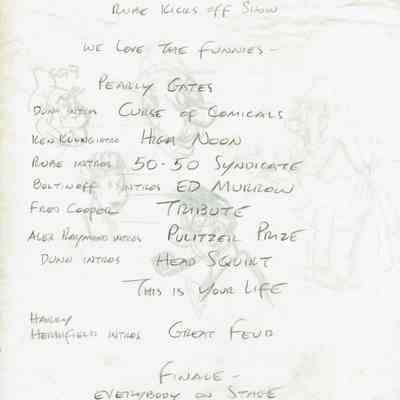 RUBE KICKS OFF SHOW
WE LOVE THE FUNNIES -
PEARLY GATES
DUNN INTROS CURSE OF COMICALS
KEN KLING INTRO HIGH NOON
RUBE INTROS 50-50 SYNDICATE
BOLTINOFF INTROS ED MURROW
FRED COOPER TRIBUTE
ALEX RAYMOND INTROS PULITZER PRIZE
DUNN INTROS HEAD SQUIRT
THIS IS YOUR LIFE
HARLEY
HERSHFIELD INTROS GREAT FEUD
FINALE -
EVERYBODY ON STAGE